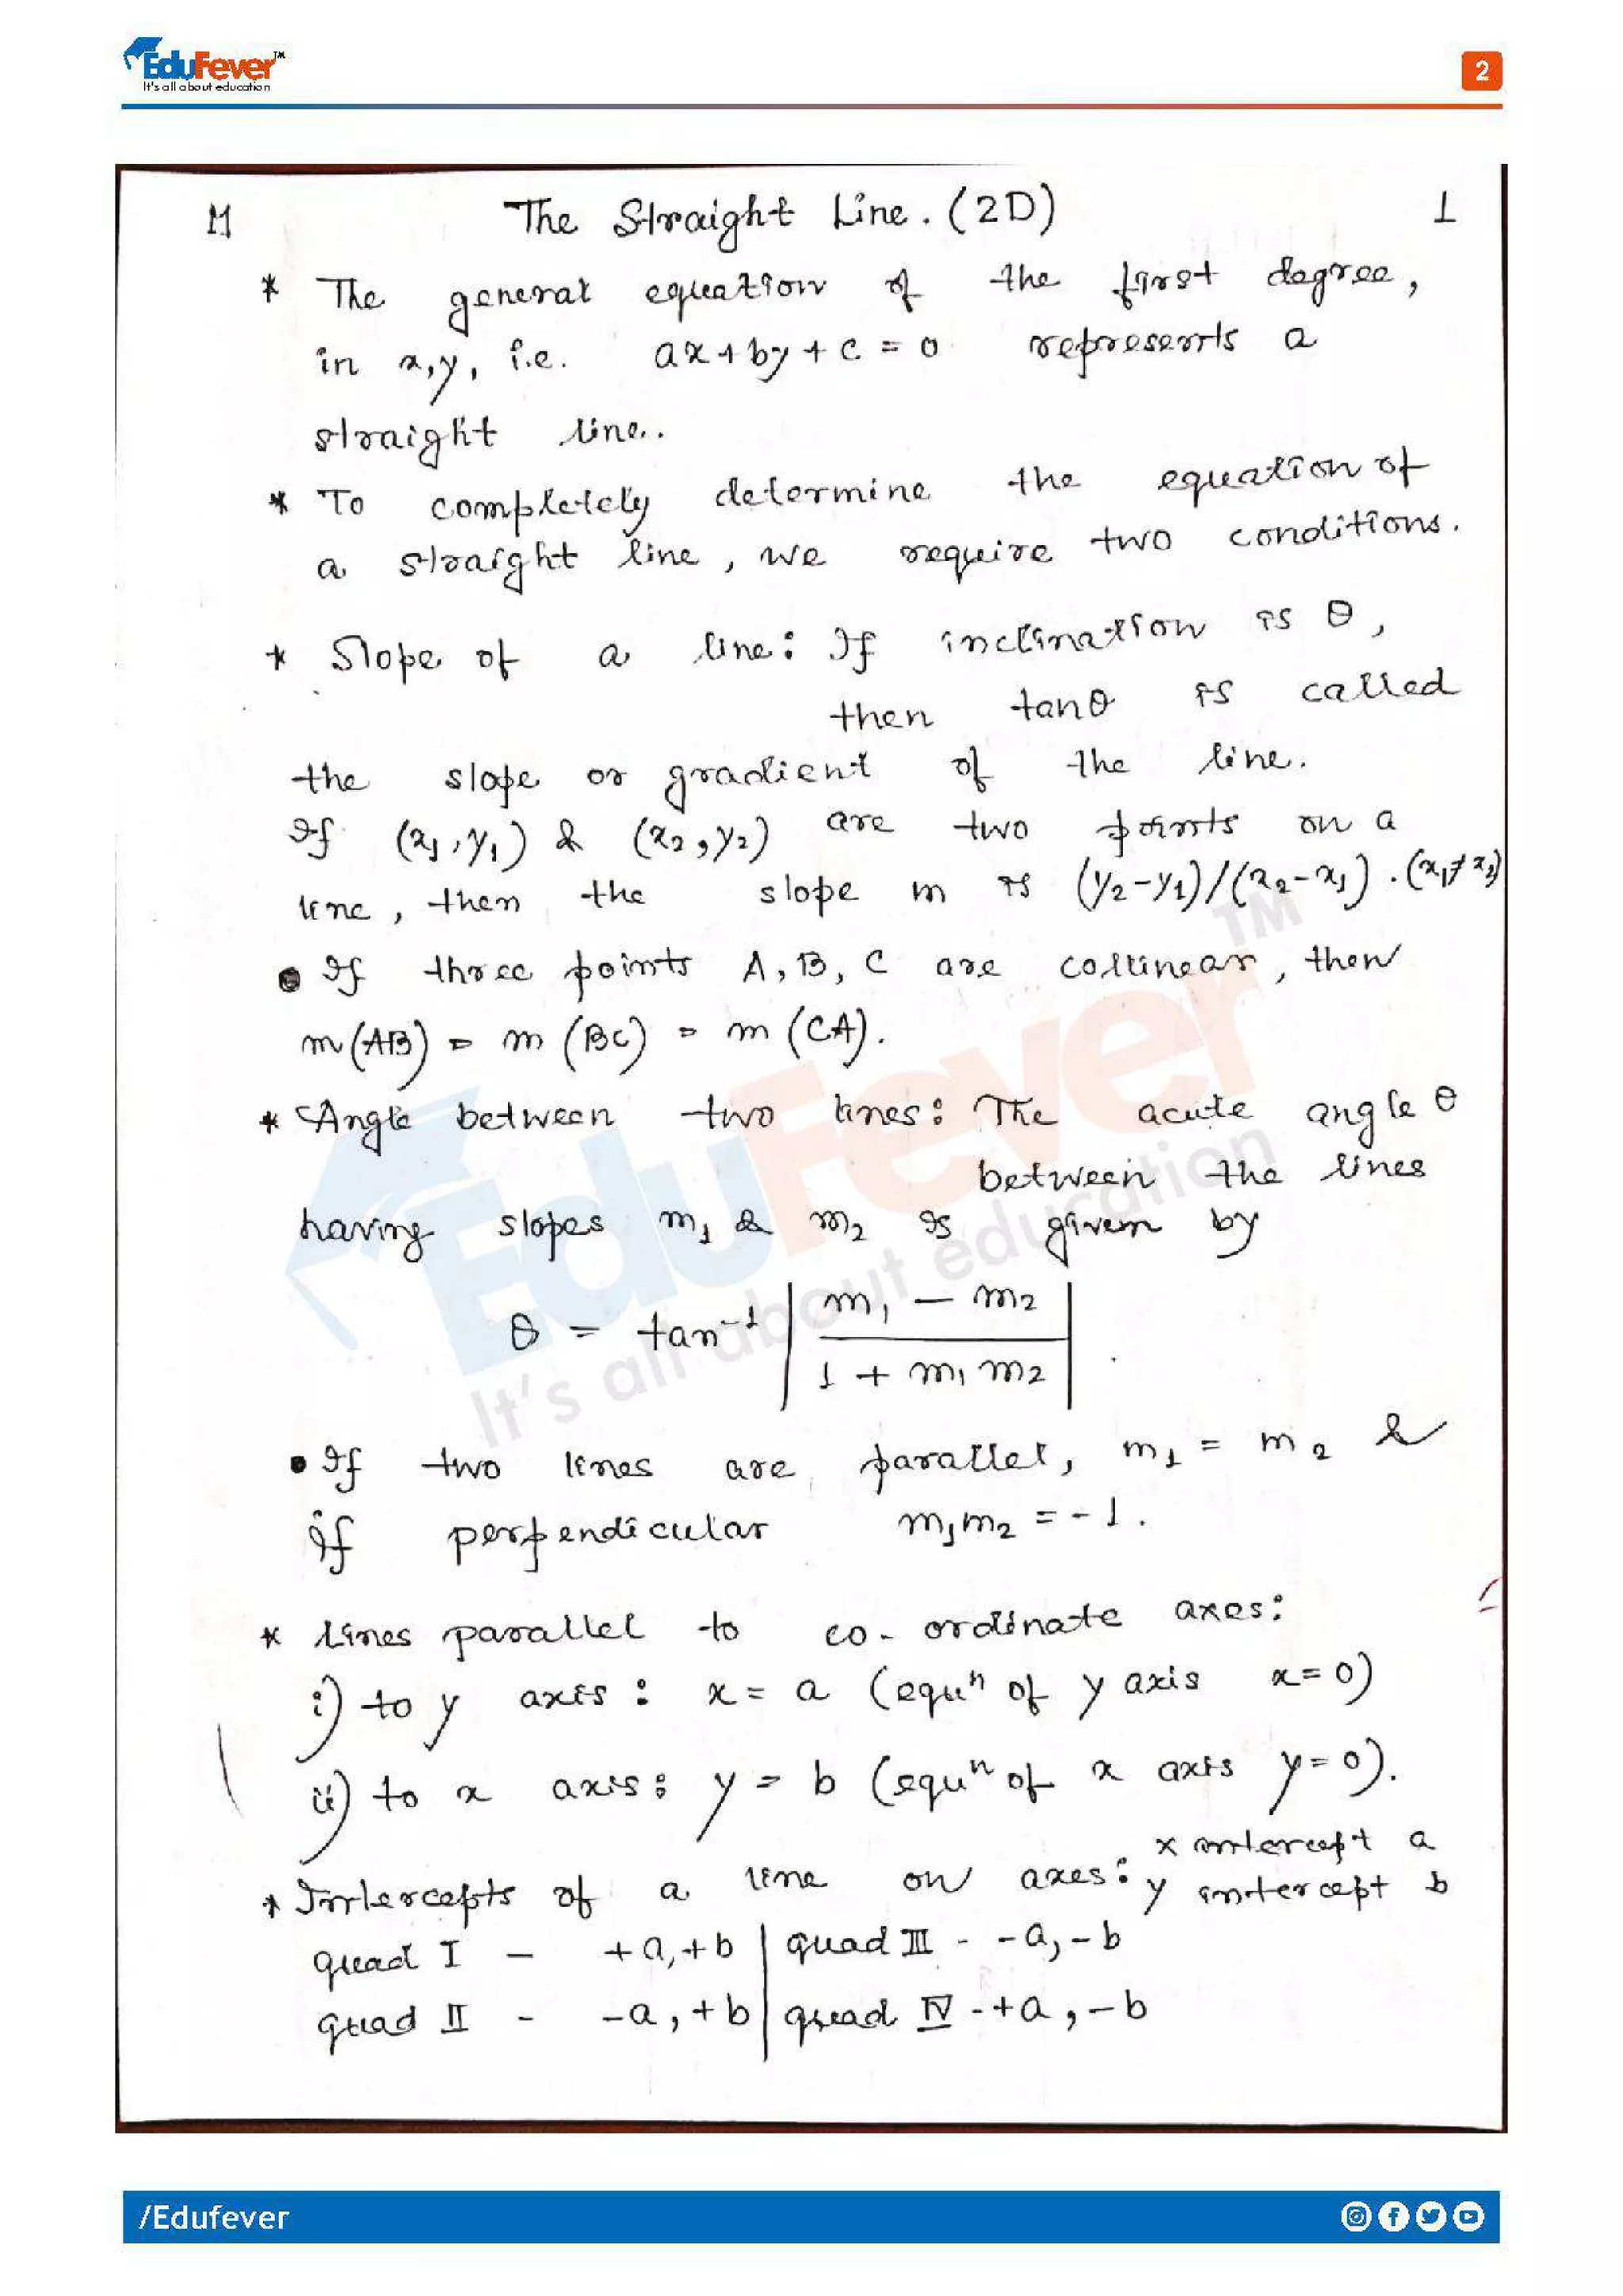 EduFever™
It's all about education
2
M The Straight Line. (2D) 1
* The general equation of the first degree,
in x,y, i.e. ax + by + c = 0 represents a
straight line.
* To completely determine the equation of
a straight line, we require two conditions.
* Slope of a line: If inclination is θ,
then tanθ is called
the slope or gradient of the line.
If (x₁,y₁) & (x₂,y₂) are two points on a
line, then the slope m is (y₂-y₁)/(x₂-x₁). (x₁≠x₂)
• If three points A, B, C are collinear, then
m(AB) = m(BC) = m(CA).
* Angle between two lines: The acute angle θ
between the lines
having slopes m₁ & m₂ is given by
θ = tan⁻¹ | (m₁ − m₂) / (1 + m₁m₂) | .
• If two lines are parallel, m₁ = m₂ &
if perpendicular m₁m₂ = -1.
* Lines parallel to co-ordinate axes:
i) to y axis : x = a (equⁿ of y axis x=0)
ii) to x axis : y = b (equⁿ of x axis y=0).
* Intercepts of a line on axes: x intercept a
y intercept b
quad I – +a,+b | quad III - -a,-b
quad II - -a,+b | quad IV - +a,-b
EduFever™
It's all about education
/Edufever